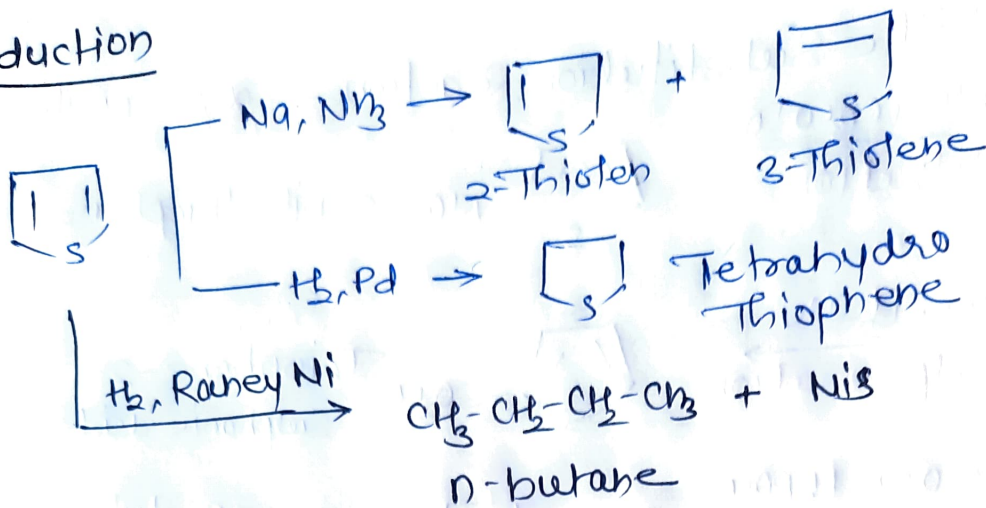 duction
Na, NH3 → + 
S S
2-Thiolen 3-Thiolene
S
H2, Pd → Tetrahydro
S Thiophene
H2, Raney Ni
CH3-CH2-CH2-CH3 + NiS
n-butane